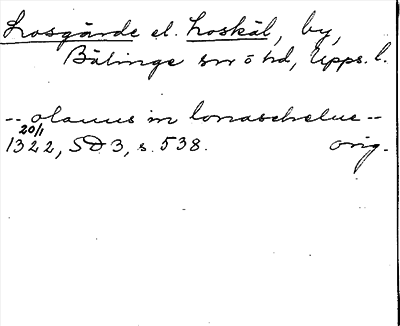 Losgärde el. Loskäl, by,
Bälinge sn o hd, Upps. l.
-- olauus in lonaschelue --
20/1
1322, SD 3, s. 538. orig.